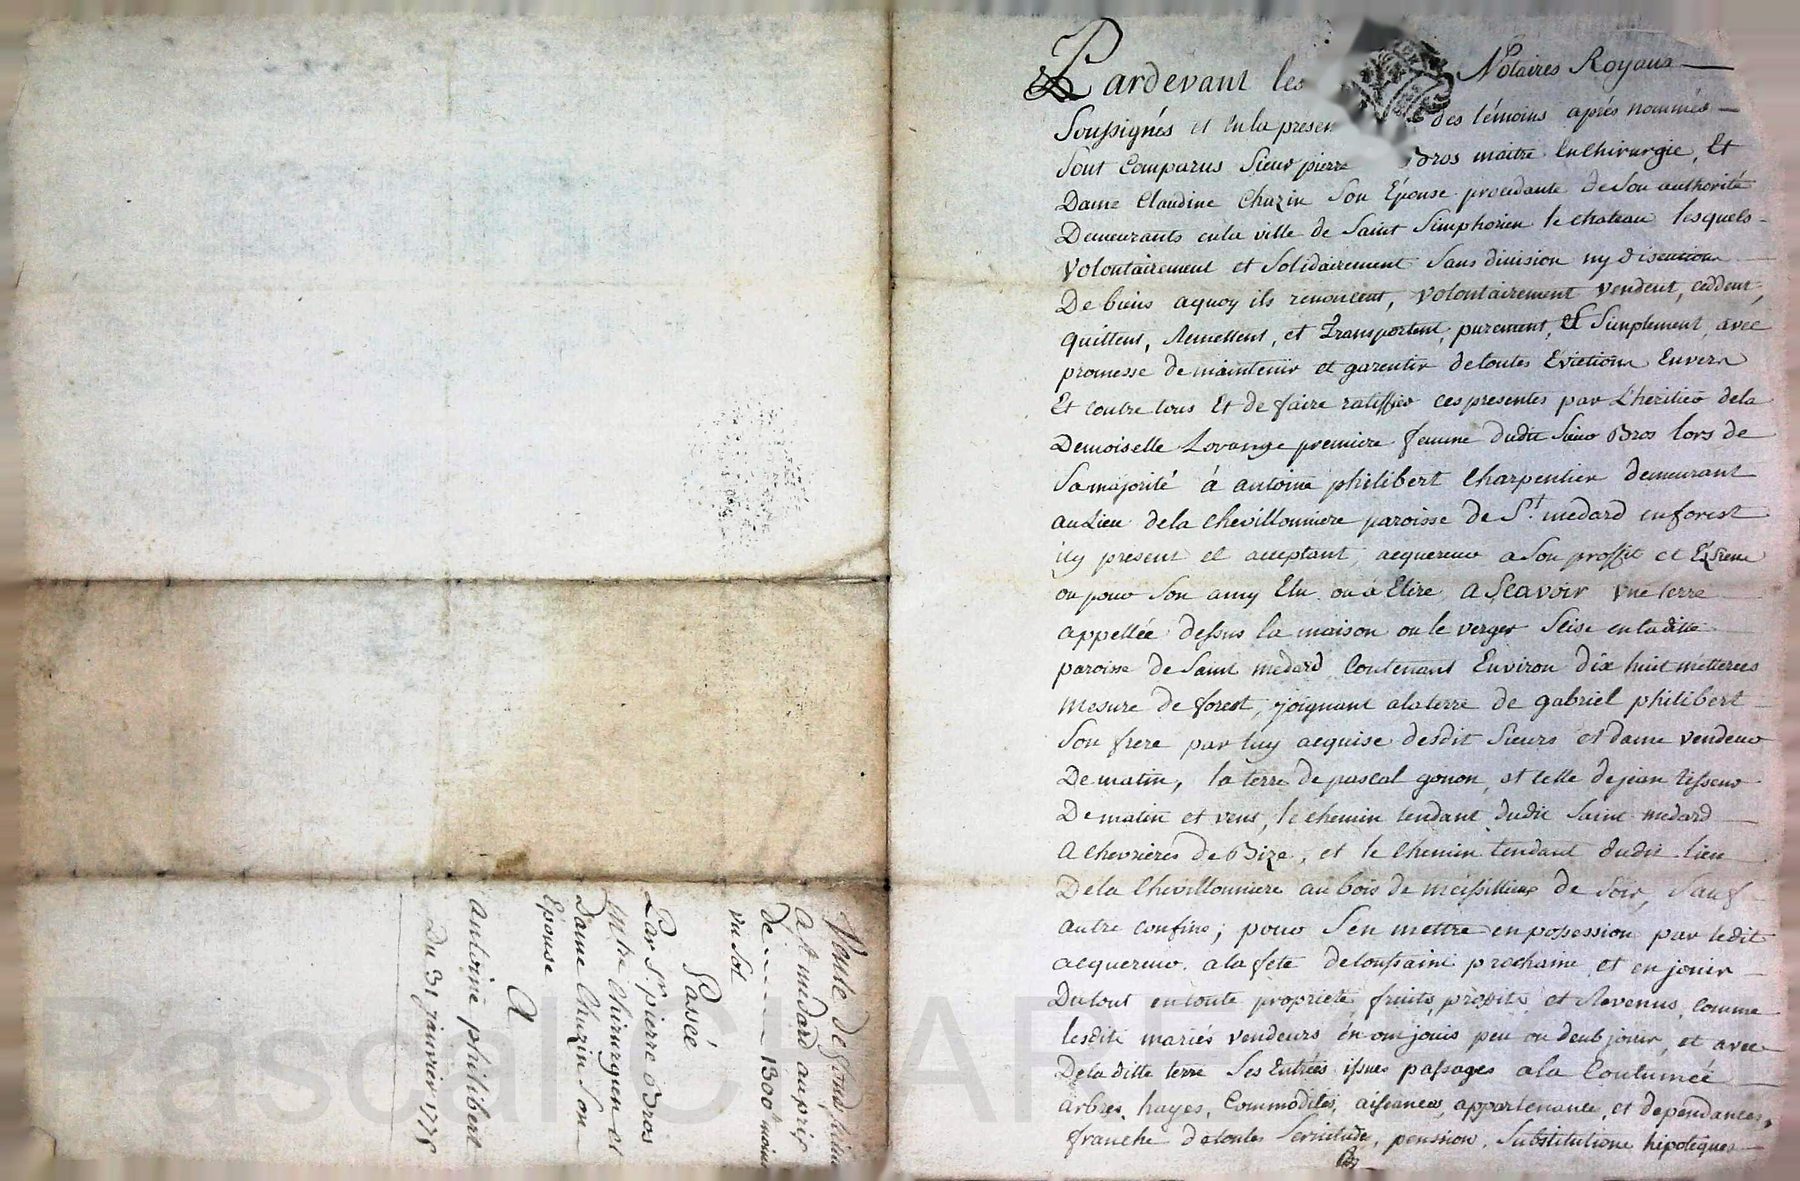 Pardevant les Notaires Royaux
Soussignés et en la presen des témoins aprés nommés
Sont Comparus Sieur pierre Bros maitre en Chirurgie, Et
Dame Claudine Chuzin Son Épouse procedante de Son authorité
Demeurants en la ville de Saint Simphorien le chateau lesquels
Volontairement et Solidairement Sans division ny discution
De biens aquoy ils renoncent, Volontairement vendent, ceddent,
quittent, Remettent, et Transportent, purement, et Simplement, avec
promesse de maintenir et garentir de toutes Evictions Envers
Et contre tous Et de faire ratiffier ces presentes par L'heritier de la
Demoiselle Lorange premiere femme dudit Sieur Bros lors de
Sa majorité á antoine philibert Charpentier demeurant
au Lieu de la Chevillonniere paroisse de St. medard en forest
icy present et acceptant, acquereur a Son proffit et
ou pour Son amy Elu ou á Elire, A Scavoir vne terre
appellée dessus la maison ou le verger Scise en la ditte
paroisse de Saint medard Contenant Environ dix huit metterées
Mesure de forest, joignant a la terre de gabriel philibert
Son frere par luy acquise desdit Sieurs et dame vendeur
De matin, la terre de pascal gonon, et celle de jean tisseur
De matin et vent, le chemin tendant dudit Saint medard
A chevrieres de Bize, et le Chemin tendant dudit lieu
De la Chevillonniere au bois de de Soir, Sauf
autre confins; pour S'en mettre en possession par ledit
acquereur a la fete de toussaint prochaine et en jouir
Du tout en toute proprieté, fruits, profits et Revenus, comme
lesdits mariés vendeurs en ont jouis peu ou deub jouir, et avec
De la ditte terre Ses Entrées issues passages a la Coutumeé
arbres, hayes, Commodités, aisances, appartenances, et dependances,
franche de toutes Servitude, pension, Substitutions hipoteques
Vente de fond Scitué
A St medard au prix
de 1300# moins
vn Sol
Passée
Par Sr pierre Bros
Mtre Chirurgien et
Dame Chuzin Son
Epouse
A
Antoine philibert
Du 31 janvier 177
Pascal CHAPE